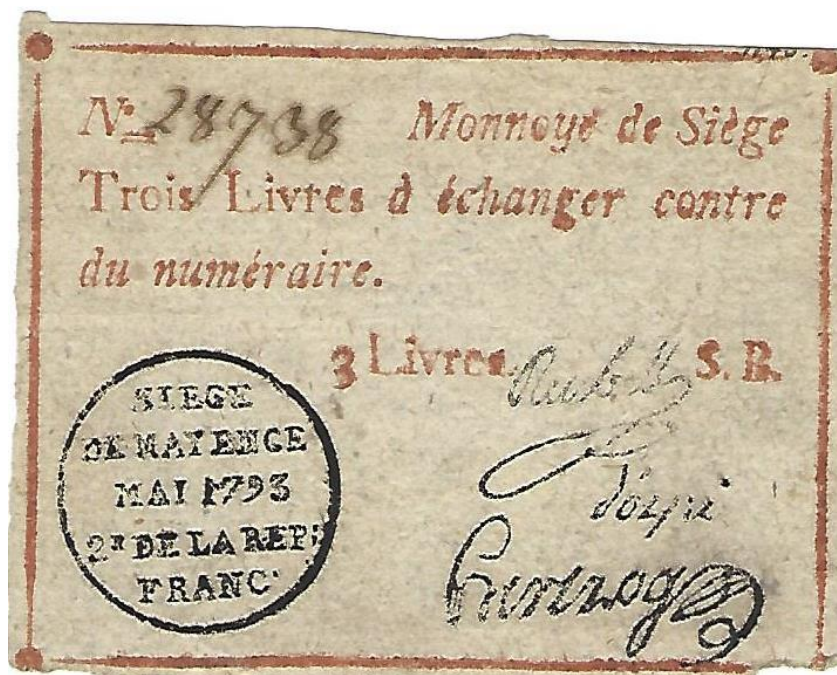 No 28738 Monnoye de Siège
Trois Livres à échanger contre
du numéraire.
3 Livres. S. B.
SIEGE
DE MAYENCE
MAI 1793
2E DE LA REP:
FRANC.